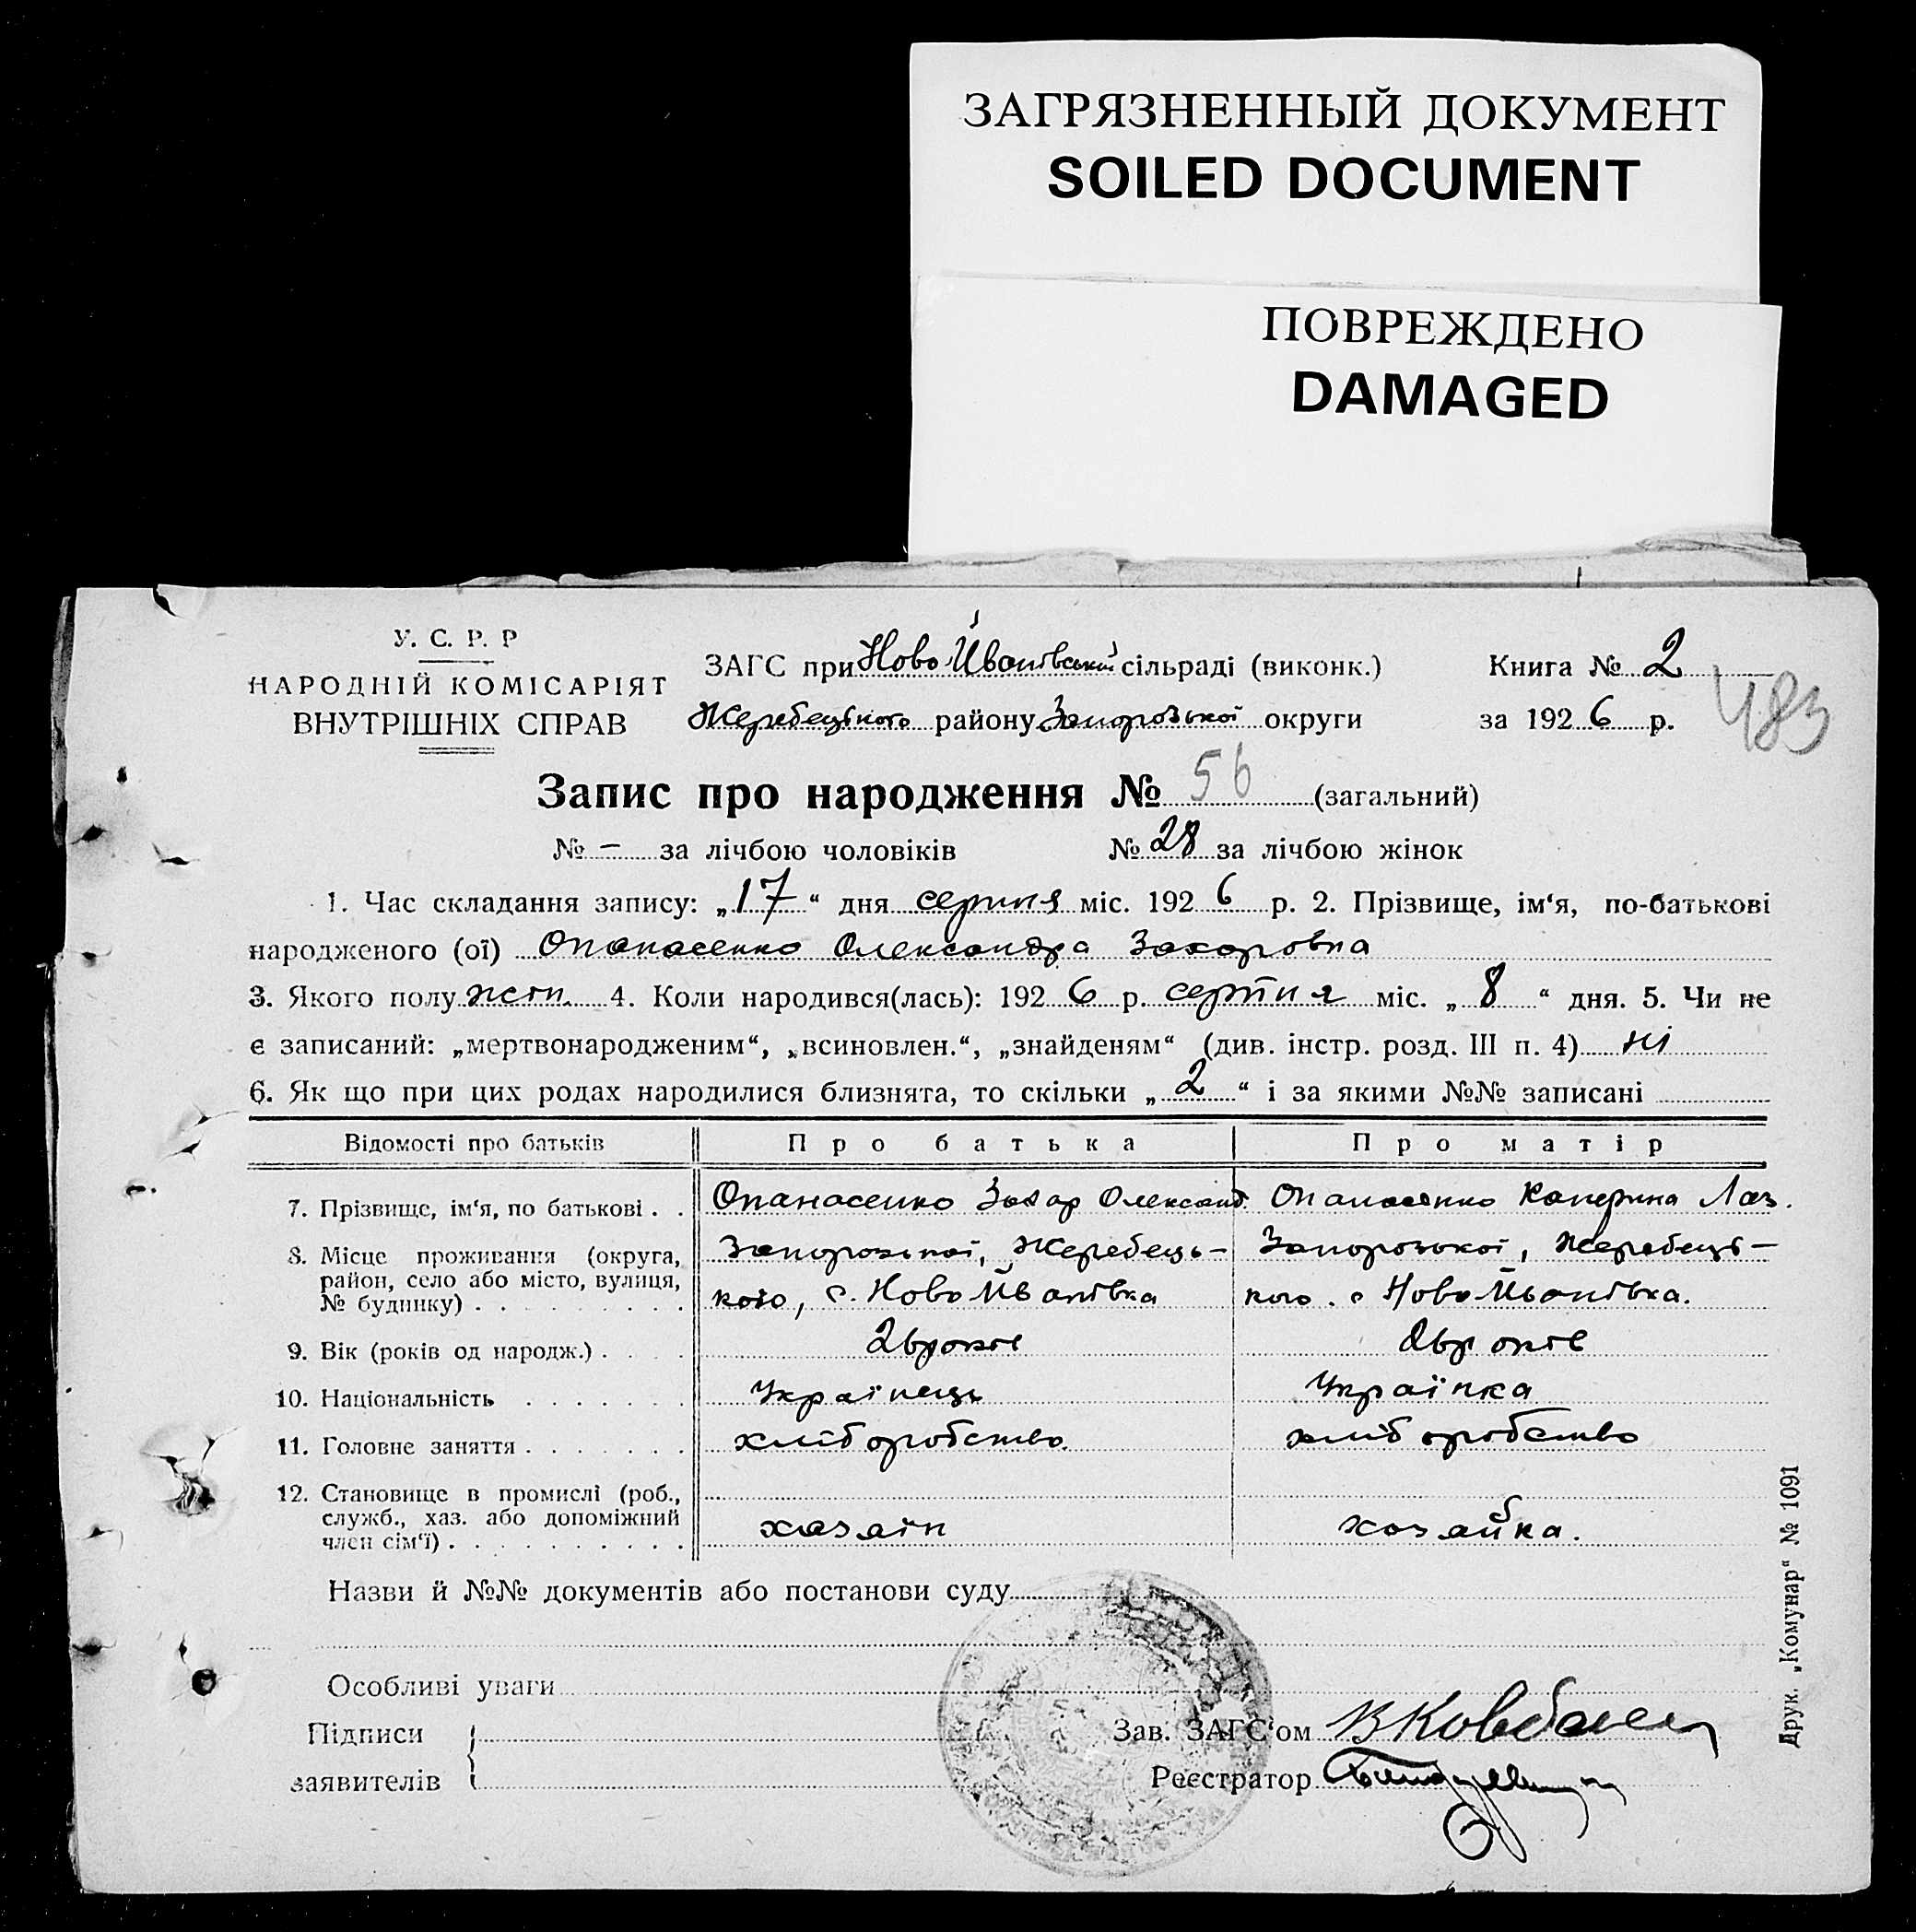 ЗАГРЯЗНЕННЫЙ ДОКУМЕНТ
SOILED DOCUMENT
ПОВРЕЖДЕНО
DAMAGED
У. С. Р. Р
НАРОДНІЙ КОМІСАРІЯТ
ВНУТРІШНІХ СПРАВ
ЗАГС при Ново Йванівській сільраді (виконк.)
Жеребецького району Запорозької округи
Книга № 2
за 1926 р.
483
Запис про народження № 56 (загальний)
№ – за лічбою чоловіків № 28 за лічбою жінок
1. Час складання запису: „17“ дня серпня міс. 1926 р. 2. Прізвище, ім‘я, по-батькові
народженого (ої) Опанасенко Олександра Захаровна
3. Якого полу жін. 4. Коли народився(лась): 1926 р. серпня міс. „8“ дня. 5. Чи не
є записаний: „мертвонародженим“, „всиновлен.“, „знайденям“ (див. інстр. розд. III п. 4) ні
6. Як що при цих родах народилися близнята, то скільки „2“ і за якими №№ записані
Відомості про батьків Про батька Про матір
7. Прізвище, ім‘я, по батькові . . Опанасенко Захар Олександ. Опанасенко Катерина Лаз.
8. Місце проживання (округа, Запорозької, Жеребець– Запорозької, Жеребець–
район, село або місто, вулиця,
№ будинку) . . . . . . . . . кого, с. Ново Йванівка кого . с Ново Йванівка.
9. Вік (років од народж.) . . . . 26 років 26 років
10. Національність . . . . . . . Українець Українка
11. Головне заняття . . . . . . . хліборобство. хліборобство
12. Становище в промислі (роб.,
служб., хаз. або допоміжний
член сім‘ї) . . . . . . . . . . хазаїн хозайка.
Назви й №№ документів або постанови суду
Особливі уваги
Підписи
заявителів
Зав. ЗАГС‘ом
Реєстратор
Друк. „Комунар“ № 1091